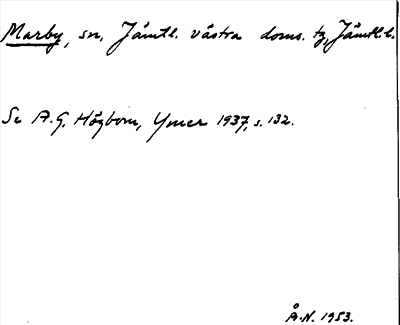 Marby, sn, Jämtl. västra doms. tg, Jämtl. l.
Se A.G. Högbom, Ymer 1937, s. 132.
Å.N. 1953.